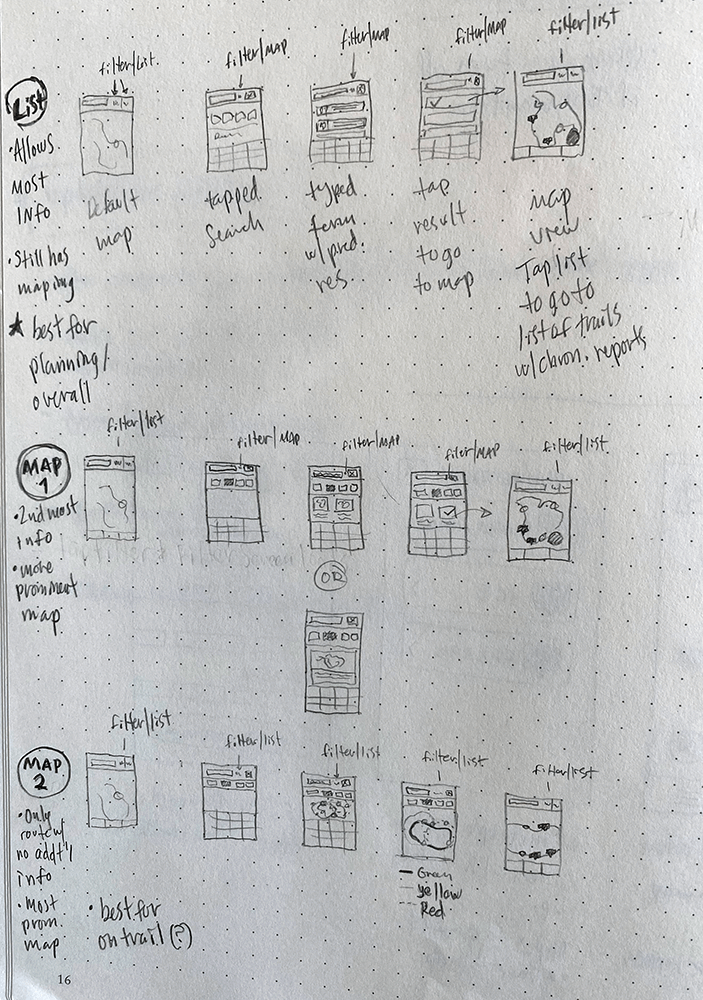 filter/list
filter/MAP
filter/MAP
filter/MAP
filter/list
List
• Allows
Most
Info
• Still has
maping
★ best for
planning/
overall
Default
map
tapped
Search
typed
w/pred.
res.
tap
result
to go
to map
map
view
Tap list
to go to
list of trails
w/chron. reports
filter/list
filter/MAP
filter/MAP
filter/MAP
filter/list
MAP
1
• 2nd most
info
• more
prominent
map
OR
filter/list
filter/list
filter/list
filter/list
filter/list
MAP
2
• Only
route w/
no addt'l
info
• Most
prom.
map
• best for
on trail (?)
Green
yellow
Red
16